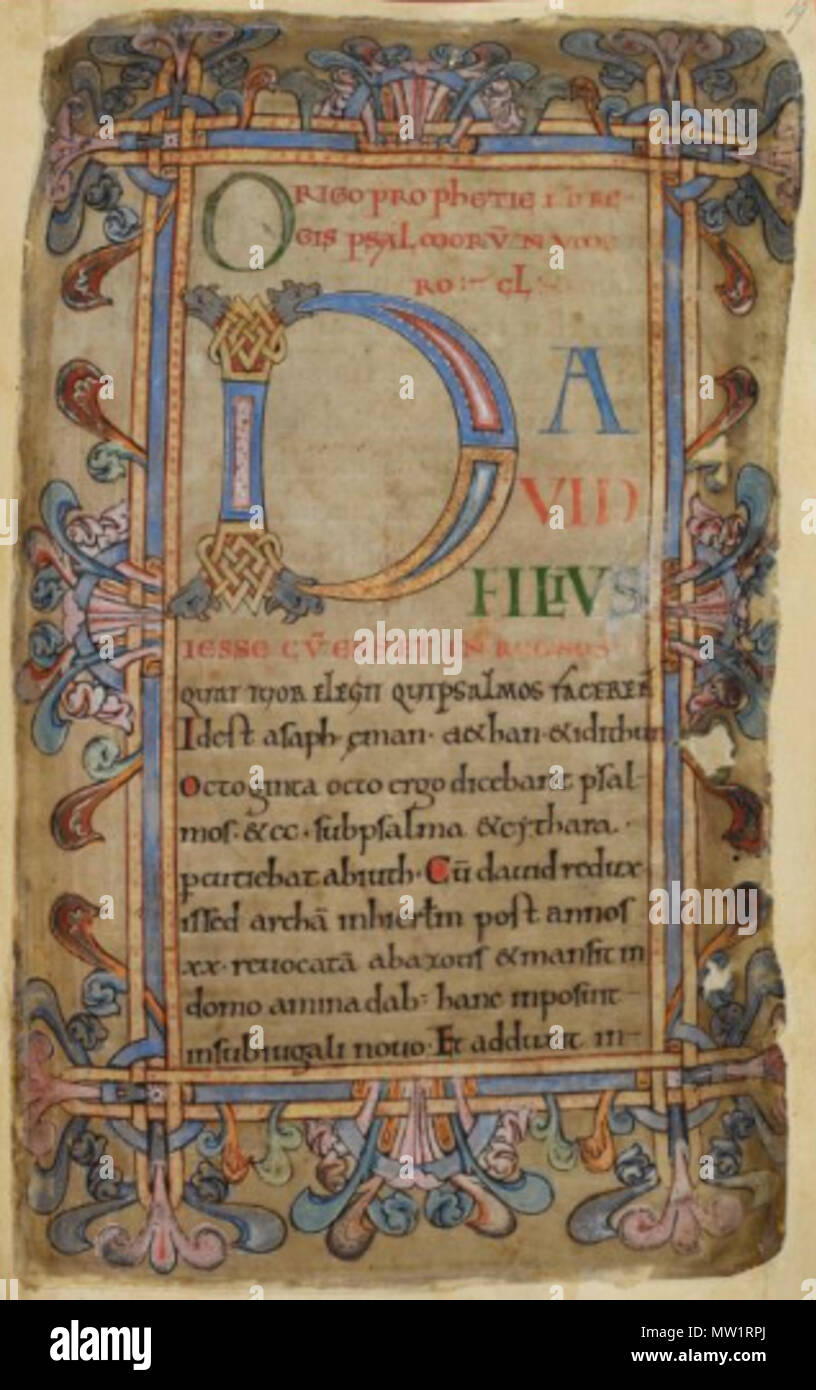 ORIGO PROPHETIE
GIS PSALMORŪ NUME
RO CL
DA
VID
FILIVS
IESSE CŪ ESSET IN REGNO SUO
QUATTUOR ELEGIT QUI PSALMOS FACERENT
Idest asaph ęman · & ethan · & idithun
Octoginta octo ergo dicebant psal-
mos · & cc · subpsalma & cythara ·
percutiebat abiuth · Cū dauid redux-
issed archā inhierłm post annos
xx · reuocatā abazotis & mansit in
domo aminadab : hanc inposuit
insubiugali nouo · Et adduxit in-
alamy
Image ID: MW1RPJ
www.alamy.com